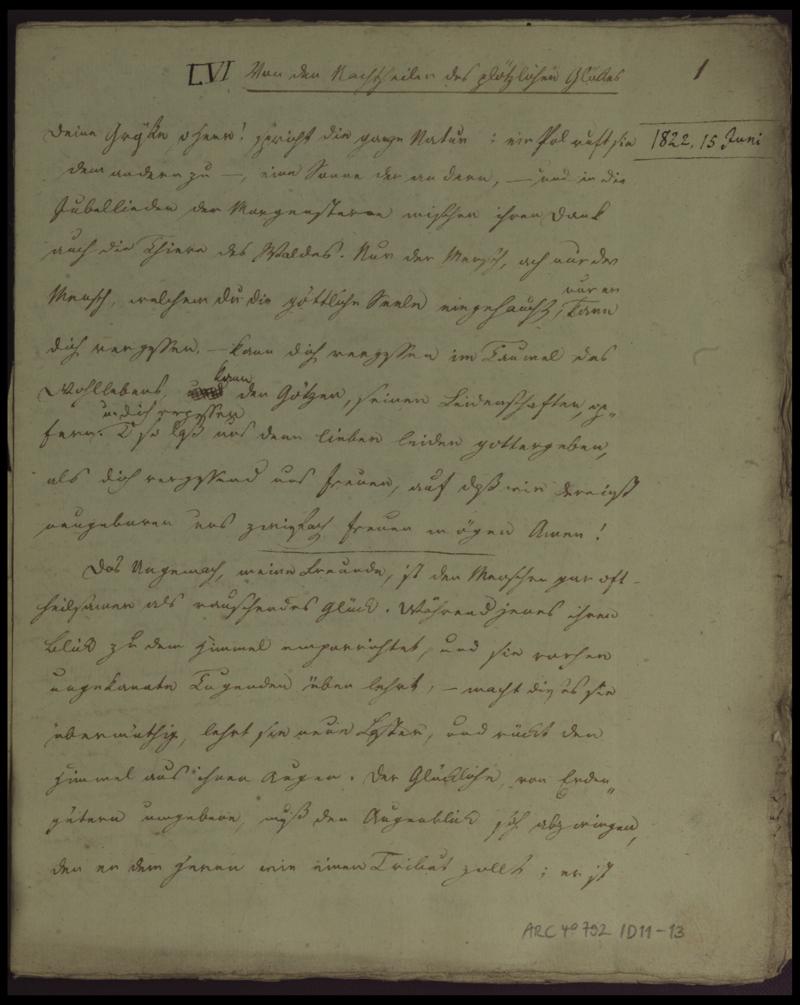 LVI Von den Nachtheilen des plötzlichen Glückes 1
1822, 15 Juni
Deine Größe o Herr! spricht die ganze Natur : ein Pol ruft sie
dem andern zu —, eine Sonne der andern, — und in die
Jubellieder der Morgensterne mischen ihren Dank
auch die Thiere des Waldes. Nur der Mensch, ach nur der
Mensch, welchem du die göttliche Seele eingehaucht, nur er kann
dich vergessen, — kann dich vergessen im Taumel des
Wohllebens, kann den Götzen, seinen Leidenschaften, op„
fern. u. dich vergessen so laß uns denn lieber leiden gottergeben,
als dich vergessend uns freuen, auf daß wir dereinst
neugeboren uns zweifach freuen mögen Amen!
Das Ungemach, meine Freunde, ist den Menschen gar oft
heilsamer als rauschendes Glück. Während jenes ihren
Blick zu dem Himmel emporrichtet, und sie vorher
ungekannte Tugenden üben lehrt, — macht dieses sie
übermüthig, lehrt sie neue Laster, und rückt den
Himmel aus ihren Augen. Der Glückliche, von Erden„
gütern umgeben, muß den Augenblick sich abzwingen,
den er dem Herrn wie einen Tribut zollt ; er ist
ARC 4º 792 /D11-13